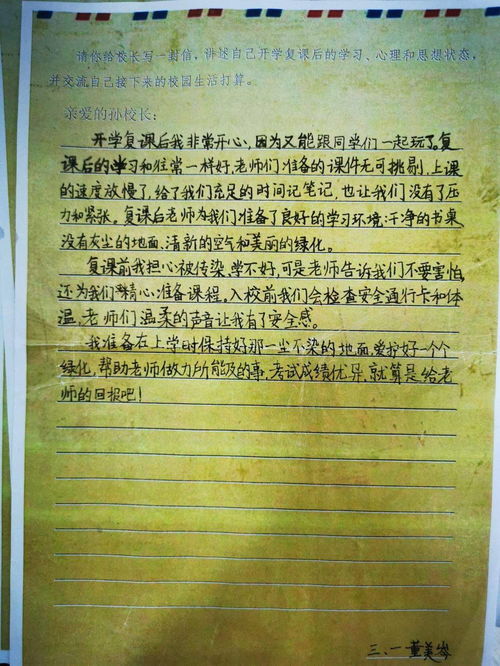 请你给校长写一封信，讲述自己开学复课后的学习、心理和思想状态，
并交流自己接下来的校园生活打算。
亲爱的孙校长：
开学复课后我非常开心，因为又能跟同学们一起玩了。复
课后的学习和往常一样好，老师们准备的课件无可挑剔，上课
的速度放慢了，给了我们充足的时间记笔记，也让我们没有了压
力和紧张。复课后老师为我们准备了良好的学习环境：干净的书桌
没有灰尘的地面、清新的空气和美丽的绿化。
复课前我担心被传染，学不好，可是老师告诉我们不要害怕，
还为我们精心准备课程。入校前我们会检查安全通行卡和体
温，老师们温柔的声音让我有了安全感。
我准备在上学时保持好那一尘不染的地面，爱护好一个个
绿化，帮助老师做力所能及的事，考试成绩优异，就算是给老
师的回报吧！
三、一 董美岑